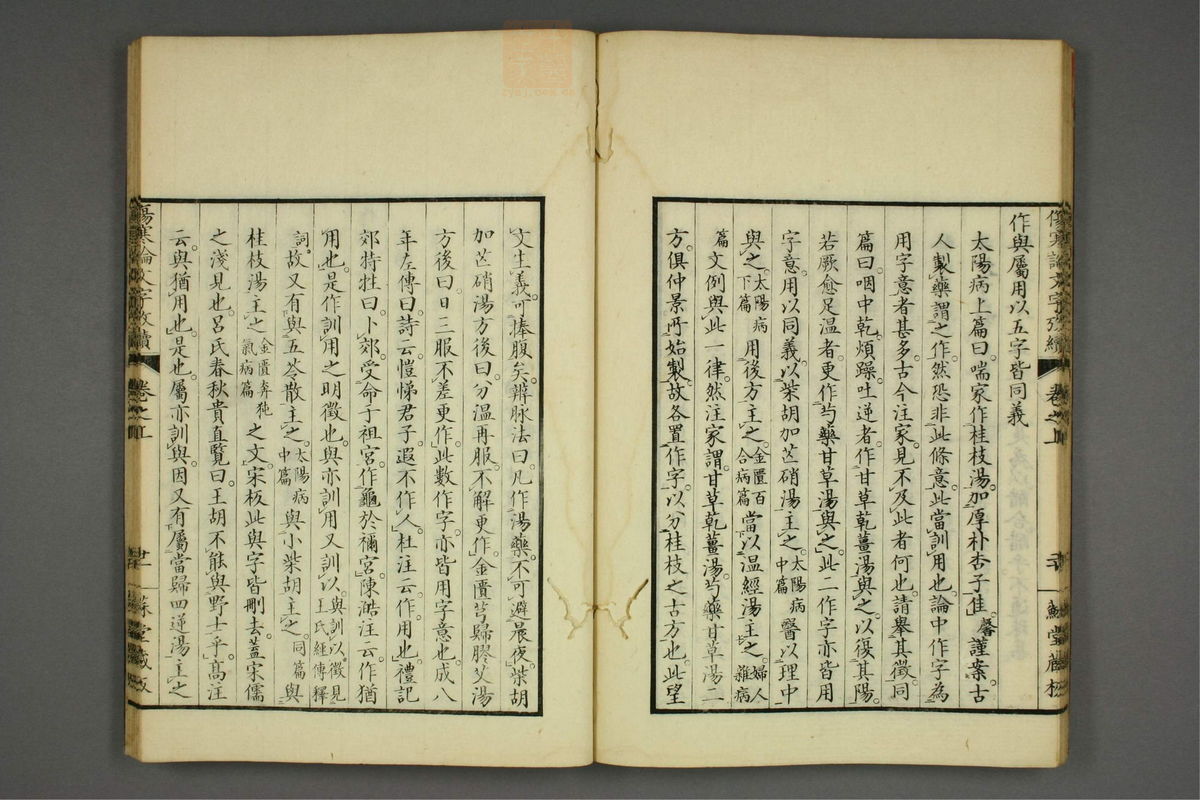 作與屬用以五字皆同義
太陽病上篇曰喘家作桂枝湯加厚朴杏子佳。馨謹案古
人製藥謂之作然恐非此條意此當訓用也論中作字為
用字意者甚多古今注家見不及此者何也請舉其徵同
篇曰咽中乾煩躁吐逆者作甘草乾薑湯與之以復其陽。
若厥愈足温者更作芍藥甘草湯與之此二作字亦皆用
字意用以同義以柴胡加芒硝湯主之。太陽病中篇 醫以理中
與之。太陽病下篇 用後方主之。金匱百合病篇 當以温經湯主之。婦人雜病
篇 文例與此一律然注家謂甘草乾薑湯芍藥甘草湯二
方俱仲景所始製故各置作字以分桂枝之古方也此望
文生義可捧腹矣辨脉法曰凡作湯藥不可避晨夜柴胡
加芒硝湯方後曰分温再服不解更作金匱芎歸膠艾湯
方後曰日三服不差更作此數作字亦皆用字意也成八
年左傳曰詩云愷悌君子遐不作人杜注云作用也禮記
郊特牲曰卜郊受命于祖宮作龜於禰宮陳澔注云作猶
用也是作訓用之明徵也與亦訓用又訓以。與訓以徵見王氏經傳釋
詞。故又有與五苓散主之。太陽病中篇 與小柴胡主之。同篇 與
桂枝湯主之 金匱奔㹠氣病篇 之文宋板此與字皆刪去蓋宋儒
之淺見也呂氏春秋貴直覽曰王胡不能與野士乎高注
云與猶用也是也屬亦訓與因又有屬當歸四逆湯主之
卷之上